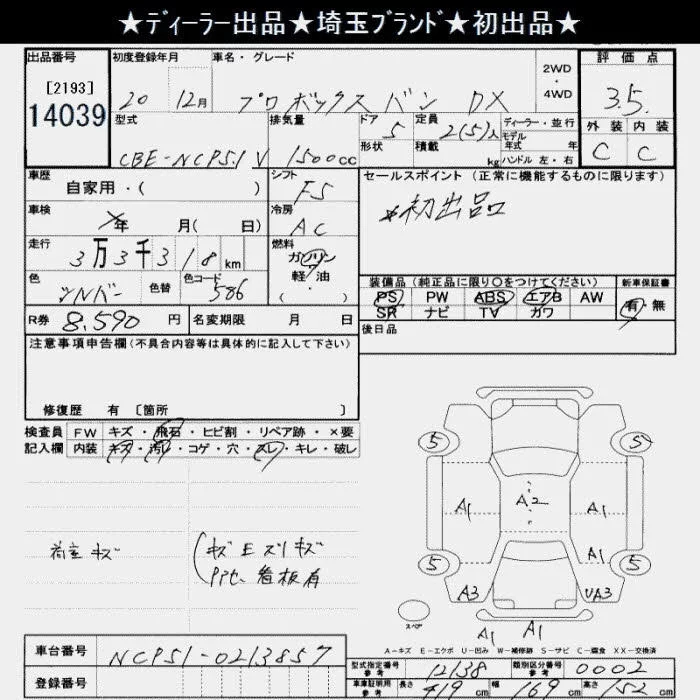 ★ディーラー出品★埼玉ブランド★初出品★
出品番号
[2193]
14039
初度登録年月
20 12月
車名・グレード
プロボックスバン DX
2WD
・
4WD
評価点
3.5
型式
CBE-NCP51V
排気量
1500cc
ドア 5
形状
定員 2(5)人
積載 kg
ディーラー・並行
モデル
年式 年
ハンドル 左・右
外装 内装
C C
車歴
自家用・( )
シフト
F5
セールスポイント(正常に機能するものに限ります)
*初出品
車検
年 月( 日)
冷房
AC
走行
3万3千318km
燃料
ガソリン
軽油
( )
色
シルバー
色替
色コード
586
装備品(純正品に限り○をつけてください)
新車保証書
PS PW ABS エアB AW
SR ナビ TV カワ
有・無
R券 8,590 円
名変期限 月 日
後日品
注意事項申告欄(不具合内容等は具体的に記入して下さい)
修復歴 有 [箇所 ]
検査員
記入欄
FW キズ・飛石・ヒビ割・リペア跡・×要
内装 キズ・汚レ・コゲ・穴・スレ・キレ・破レ
5 5
A1 A2 A1
A1
5 5
A3 UA3
スペア
A1 A1
荷室キズ
キズ エスリキズ
看板有
A-キズ E-エクボ U-凹み W-補修跡 S-サビ C-腐食 XX-交換済
車台番号
NCP51-0213857
登録番号
型式指定番号
参考
12138
類別区分番号
参考
0002
車庫証明用
参考
長さ 419cm
幅 169cm
高さ 152cm